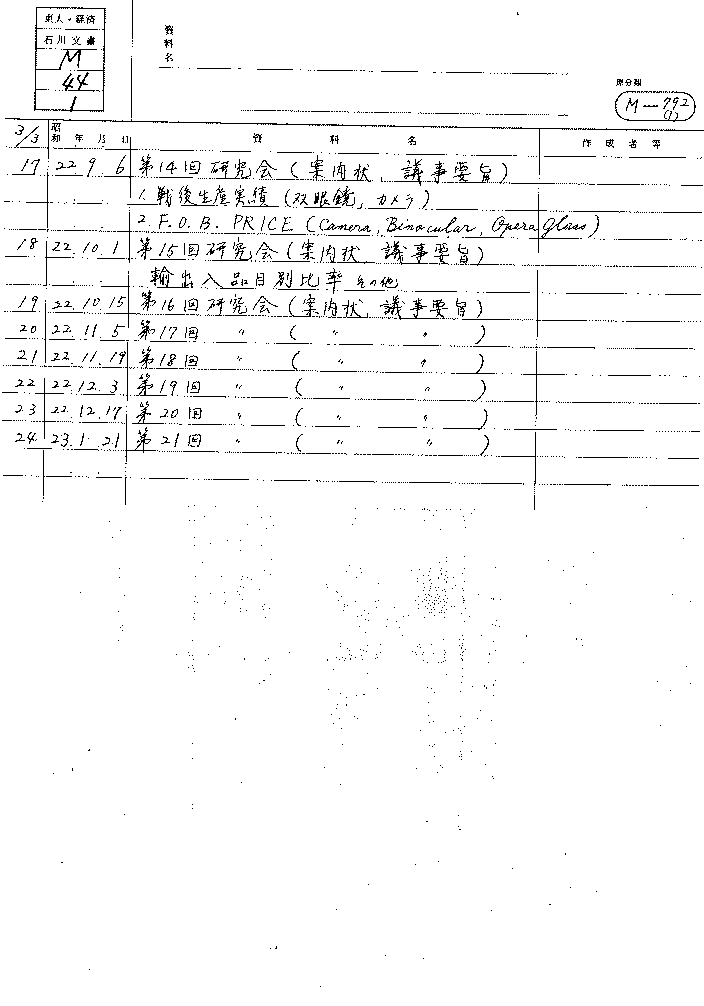 東大・経済
石川文書
M
44
1
資料名
原分類
M-792
(1)
3/3 昭和 年 月 日 資 料 名 作 成 者 等
17 22 9 6 第14回研究会(案内状、議事要旨)
1. 戦後生産実績(双眼鏡, カメラ)
2. F.O.B. PRICE (Camera, Binocular, Opera Glass)
18 22.10.1 第15回研究会(案内状、議事要旨)
輸出入品目別比率 その他
19 22 10 15 第16回研究会(案内状、議事要旨)
20 22.11.5 第17回 〃 ( 〃 〃 )
21 22.11.19 第18回 〃 ( 〃 〃 )
22 22.12.3 第19回 〃 ( 〃 〃 )
23 22.12.17 第20回 〃 ( 〃 〃 )
24 23.1.21 第21回 〃 ( 〃 〃 )